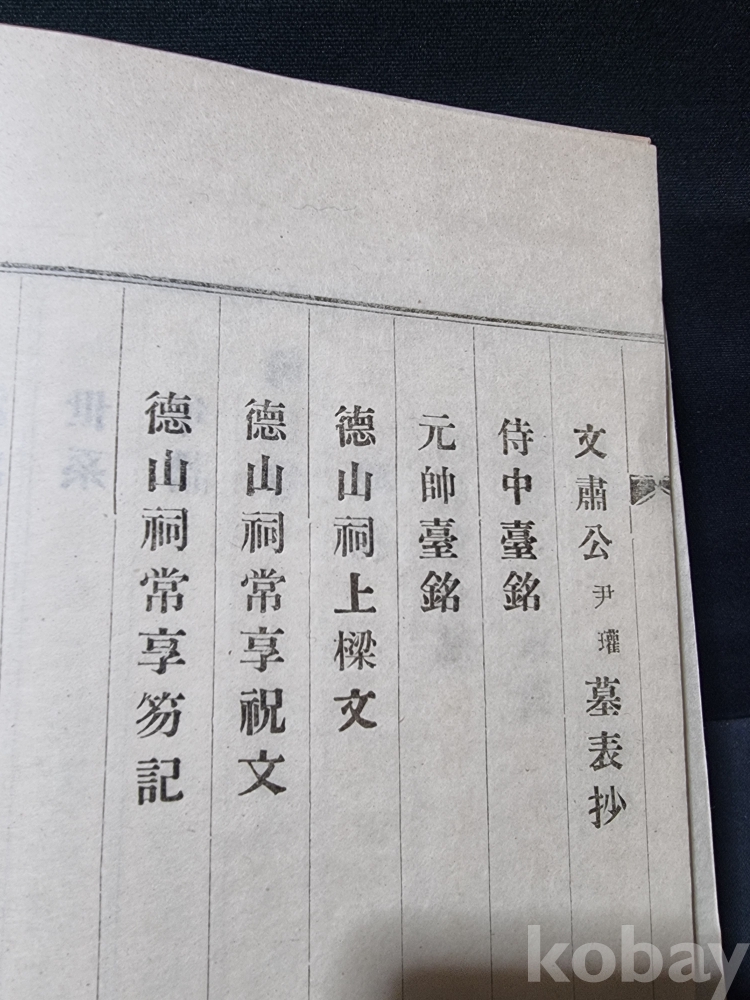 文肅公尹瓘墓表抄
侍中臺銘
元帥臺銘
德山祠上樑文
德山祠常享祝文
德山祠常享笏記
世系
kobay